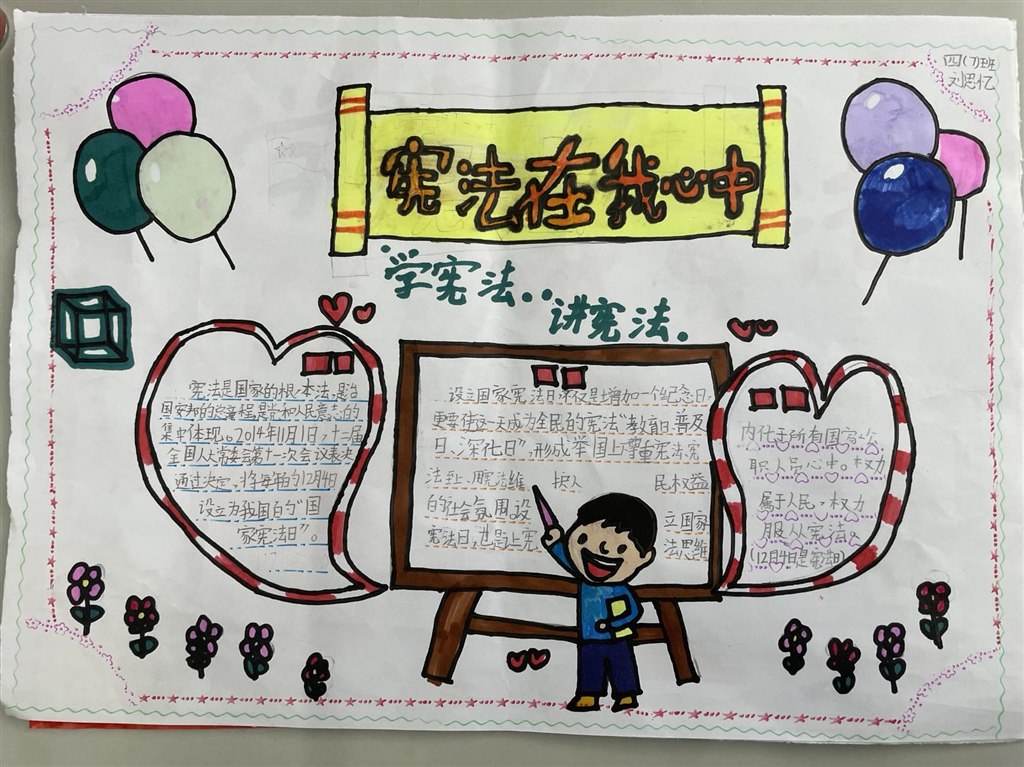 四(7)班
刘思忆
宪法在我心中
学宪法..
讲宪法.
宪法是国家的根本法,是治
国安邦的总章程是党和人民意志的
集中体现。2014年11月1日,十二届
全国人大常委会第十一次会议表决
通过决定,将每年的12月4日
设立为我国的“国
家宪法日”。
设立国家宪法日,不仅是增加一个纪念日,
更要使这一天成为全民的宪法“教育日、普及
日、深化日”,形成举国上尊重宪法、宪
法至上、用宪法维 护人 民权益
的社会氛围,设 立国家
宪法日,也是上宪 法思维
内化于所有国家公
职人员心中。权力
属于人民,权力
服从宪法。
(12月4日是宪法日)